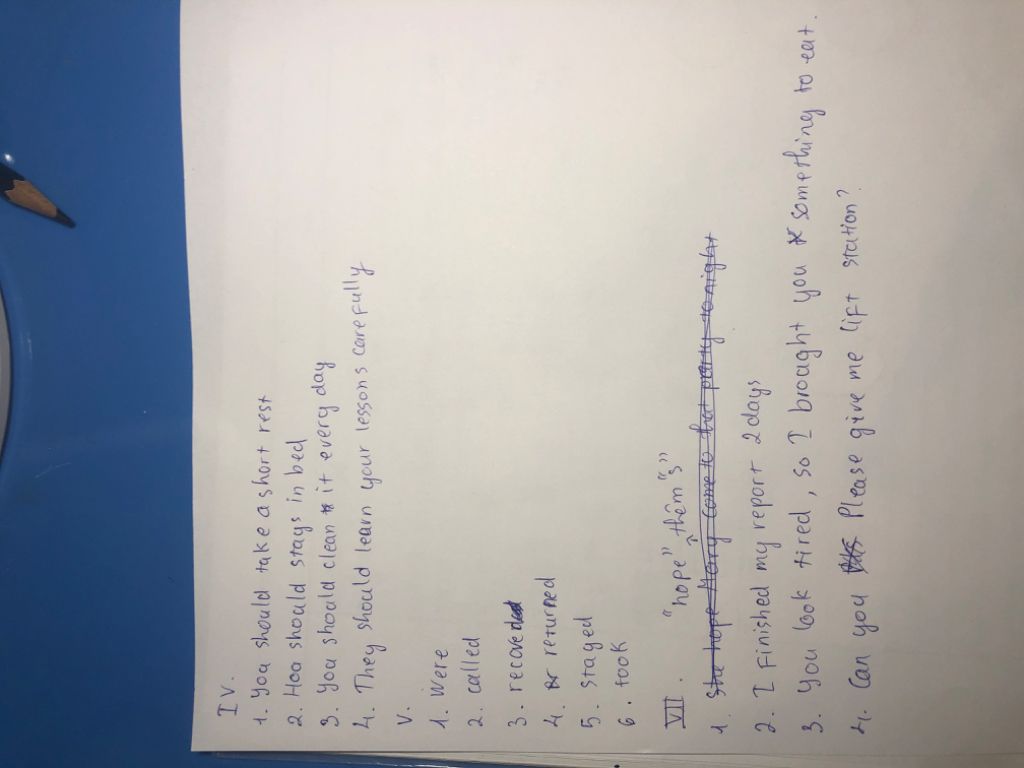 IV.
1. You should take a short rest
2. Hoa should stays in bed
3. You should clean it every day
4. They should learn your lessons carefully
V.
1. Were
2. called
3. recove
4. returned
5. stayed
6. took
VII. "hope" thêm "s"
1. She hope Mary come to that party tonight
2. I Finished my report 2 days
3. You look tired, so I brought you something to eat.
4. Can you Please give me lift station?